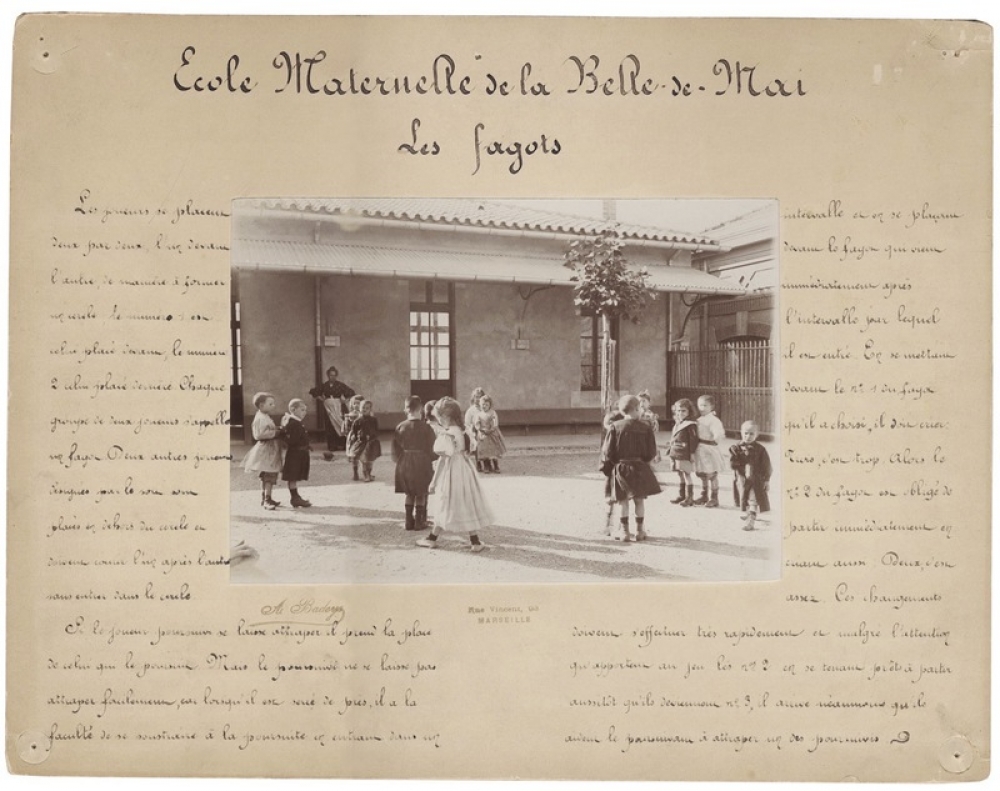 Ecole Maternelle de la Belle-de-Mai
Les fagots
Les joueurs se placent
deux par deux, l'un devant
l'autre, de manière à former
un cercle. Le numéro 1 est
celui placé devant, le numéro
2 celui placé derrière. Chaque
groupe de deux joueurs s'appelle
un fagot. Deux autres joueurs
désignés par le sort sont
placés en dehors du cercle et
doivent courir l'un après l'autre
sans entrer dans le cercle.
Si le joueur poursuivi se laisse attraper il prend la place
de celui qui le poursuit. Mais le poursuivi ne se laisse pas
attraper facilement, car lorsqu'il est serré de près, il a la
faculté de se soustraire à la poursuite en entrant dans un
intervalle et en se plaçant
devant le fagot qui vient
immédiatement après
l'intervalle par lequel
il est entré. En se mettant
devant le nº 1 du fagot
qu'il a choisi, il doit crier:
Trois, c'est trop. Alors le
nº 2 du fagot est obligé de
partir immédiatement en
criant aussi: Deux, c'est
assez. Ces changements
doivent s'effectuer très rapidement et malgré l'attention
qu'apportent au jeu les nº 2 en se tenant prêts à partir
aussitôt qu'ils deviennent nº 3, il arrive néanmoins qu'ils
aident le poursuivant à attraper un des poursuivis.
Rue Vincent,
MARSEILLE